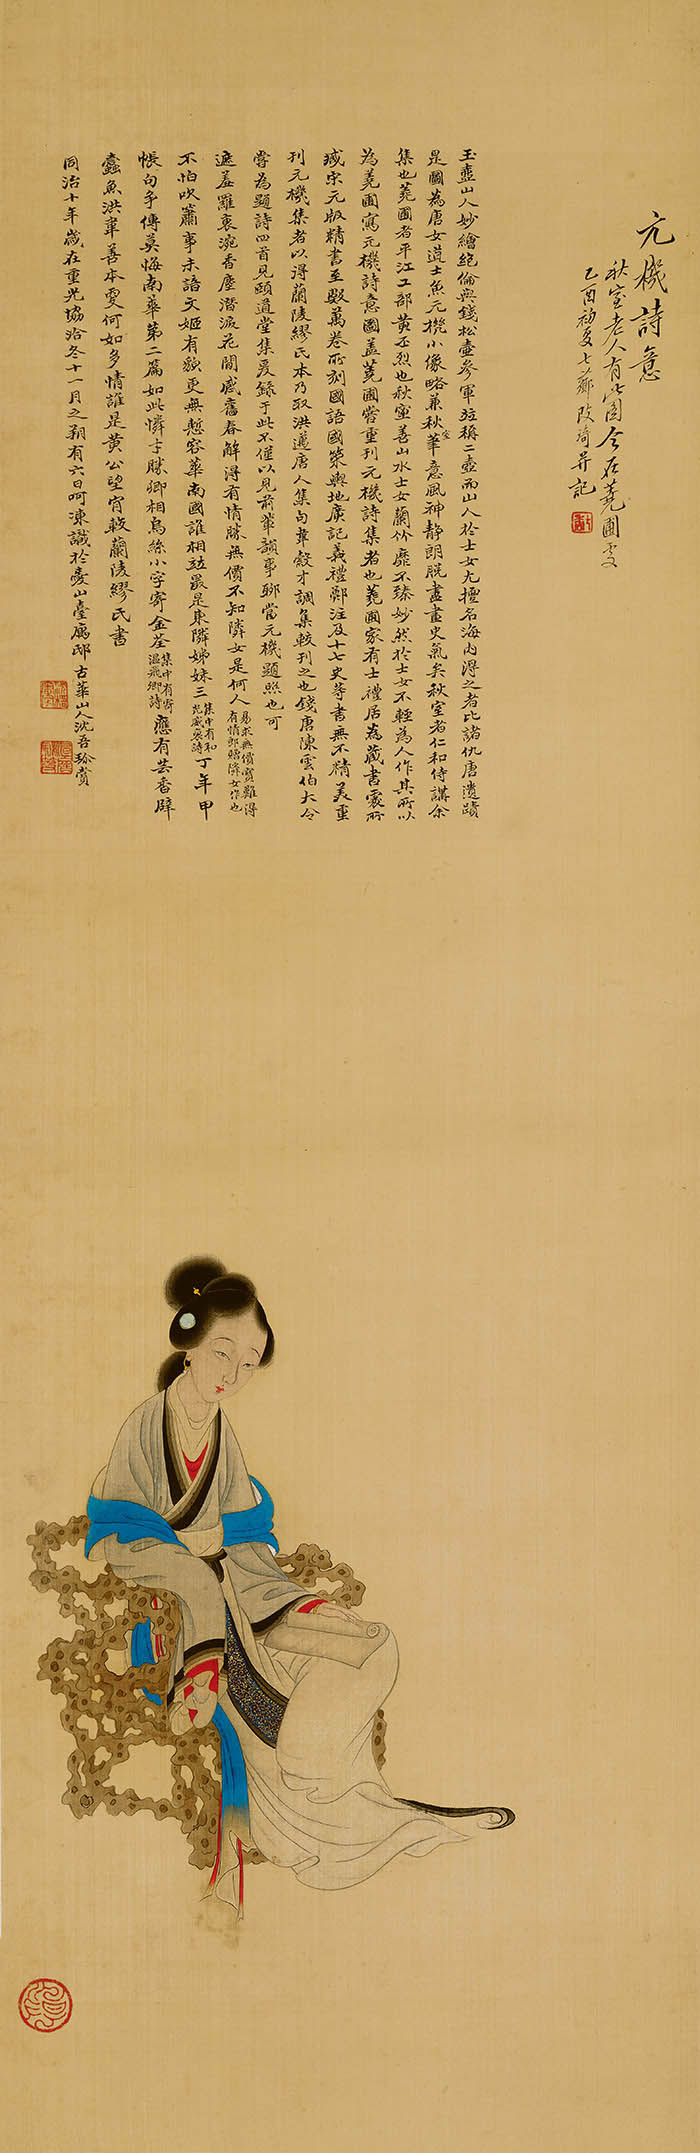 元機詩意
秋室老人有此圖今在蕘圃處
乙酉初夏七薌改琦并記
玉壺山人妙繪絕倫與錢松壺參軍竝稱二壺而山人於士女尤擅名海內得之者比諸仇唐遺蹟
是圖為唐女道士魚元機小像略兼秋室華意風神靜朗脫盡畫史氣矣秋室者仁和侍講余
集也蕘圃者平江工部黃丕烈也秋室善山水士女蘭竹靡不臻妙然於士女不輕為人作其所以
為蕘圃寫元機詩意圖蓋蕘圃嘗重刊元機詩集者也蕘圃家有士禮居為藏書處所
臧宋元版精書至數萬卷所刻國語國策輿地廣記義禮鄭注及十七史等書無不精美重
刊元機集者以得蘭陵繆氏本乃取洪邁唐人集句韋縠才調集較刊之也錢唐陳雲伯大令
嘗為題詩四首見頤道堂集爰錄于此不僅以見前輩韻事聊當元機題照也可
遮羞羅袠涴香塵潛淚花閒感舊春解得有情勝無價不知隣女是何人易求無價寶難得有情郎贈隣女作也
不怕吹簫事未諧文姬有貌更無慙容華南國誰相竝最是東隣姊妹三集中有和光威裒詩丁年甲
帳句乎傳莫悔南華第二篇如此憐才勝卿相烏絲小字寄金荃集中有寄溫飛卿詩應有芸香辟
蠹魚洪輩善本處何如多情誰是黃公望肯較蘭陵繆氏書
同治十年歲在重光協洽冬十一月之朔有六日呵凍識於亭山臺廡邸古華山人沈吾珍賞